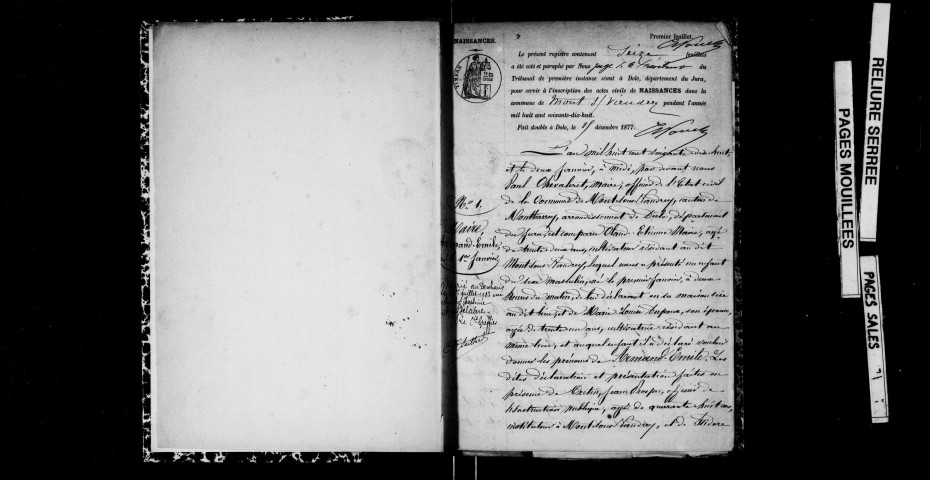 NAISSANCES.
Premier feuillet.
Le présent registre contenant Seize feuillets
a été coté et paraphé par Nous juge
Tribunal de première instance séant à Dole, département du Jura,
pour servir à l'inscription des actes civils de NAISSANCES dans la
commune de Mont s/ Vaudrey pendant l'année
mil huit cent soixante-dix-huit.
Fait double à Dole, le décembre 1877.
L'an mil huit cent soixante dix huit,
et le deux janvier, à midi, par devant nous
Paul Chevaleret, maire, officier de l'état civil
de la Commune de Mont-sous-Vaudrey, canton de
Montbarrey, arrondissement de Dole, département
du Jura, est comparu Maire, agé
de trente deux ans, cultivateur résidant au dit
Mont sous Vaudrey, lequel nous a présenté un enfant
du sexe masculin, né le premier janvier, à deux
heures du matin de lui déclarant en sa maison sise
au dit lieu, et de Marie Louise son épouse,
agée de trente un ans, cultivatrice résidant au
même lieu, et auquel enfant il a déclaré vouloir
donner les prénoms de Armand-Emile. Les
dites déclaration et présentation faites en
présence de Cretin, Jean Prosper, officier de
l'instruction publique, agé de quarante huit ans,
instituteur à Mont sous Vaudrey, et de Isidore
No. 1.
Maire,
Armand-Emile,
1er Janvier
RELIURE SERREE
PAGES MOUILLEES
PAGES SALES